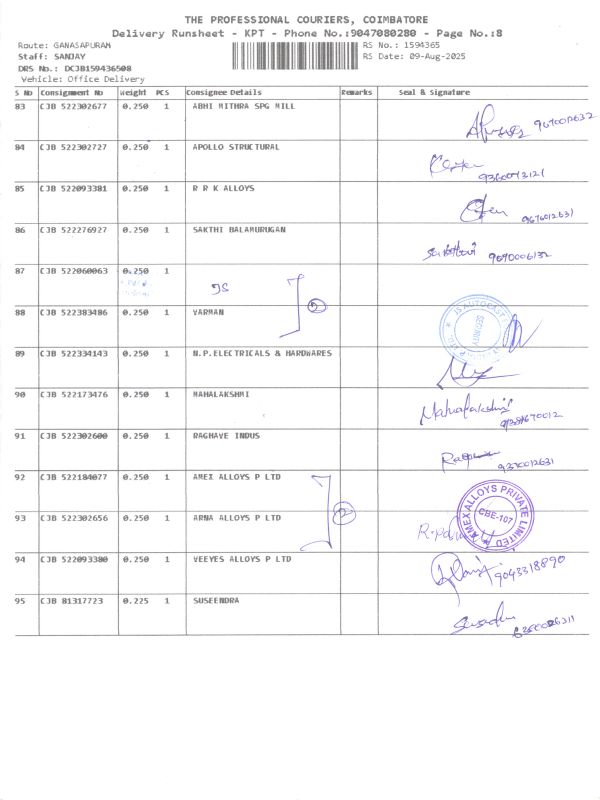 THE PROFESSIONAL COURIERS, COIMBATORE
Delivery Runsheet - KPT - Phone No.:9047080280 - Page No.:8
Route: GANASAPURAM RS No.: 1594365
Staff: SANJAY RS Date: 09-Aug-2025
DRS No.: DCJB159436508
Vehicle: Office Delivery
S No Consignment No Weight PCS Consignee Details Remarks Seal & Signature
83 CJB 522302677 0.250 1 ABHI MITHRA SPG MILL
84 CJB 522302727 0.250 1 APOLLO STRUCTURAL
85 CJB 522093381 0.250 1 R R K ALLOYS
9676012631
86 CJB 522276927 0.250 1 SAKTHI BALAMURUGAN
9690006132
87 CJB 522060063 0.250 1 JS
2
88 CJB 522383486 0.250 1 VARMAN
JS AUTOCAST SECURITY
89 CJB 522334143 0.250 1 N.P.ELECTRICALS & HARDWARES
90 CJB 522173476 0.250 1 MAHALAKSHMI
Mahalakshmi
91 CJB 522302600 0.250 1 RAGHAVE INDUS
9370012631
92 CJB 522184077 0.250 1 AMEX ALLOYS P LTD
AMEX ALLOYS PRIVATE LIMITED
CBE-107
2
93 CJB 522302656 0.250 1 ARNA ALLOYS P LTD
94 CJB 522093380 0.250 1 VEEYES ALLOYS P LTD
9043318890
95 CJB 81317723 0.225 1 SUSEENDRA